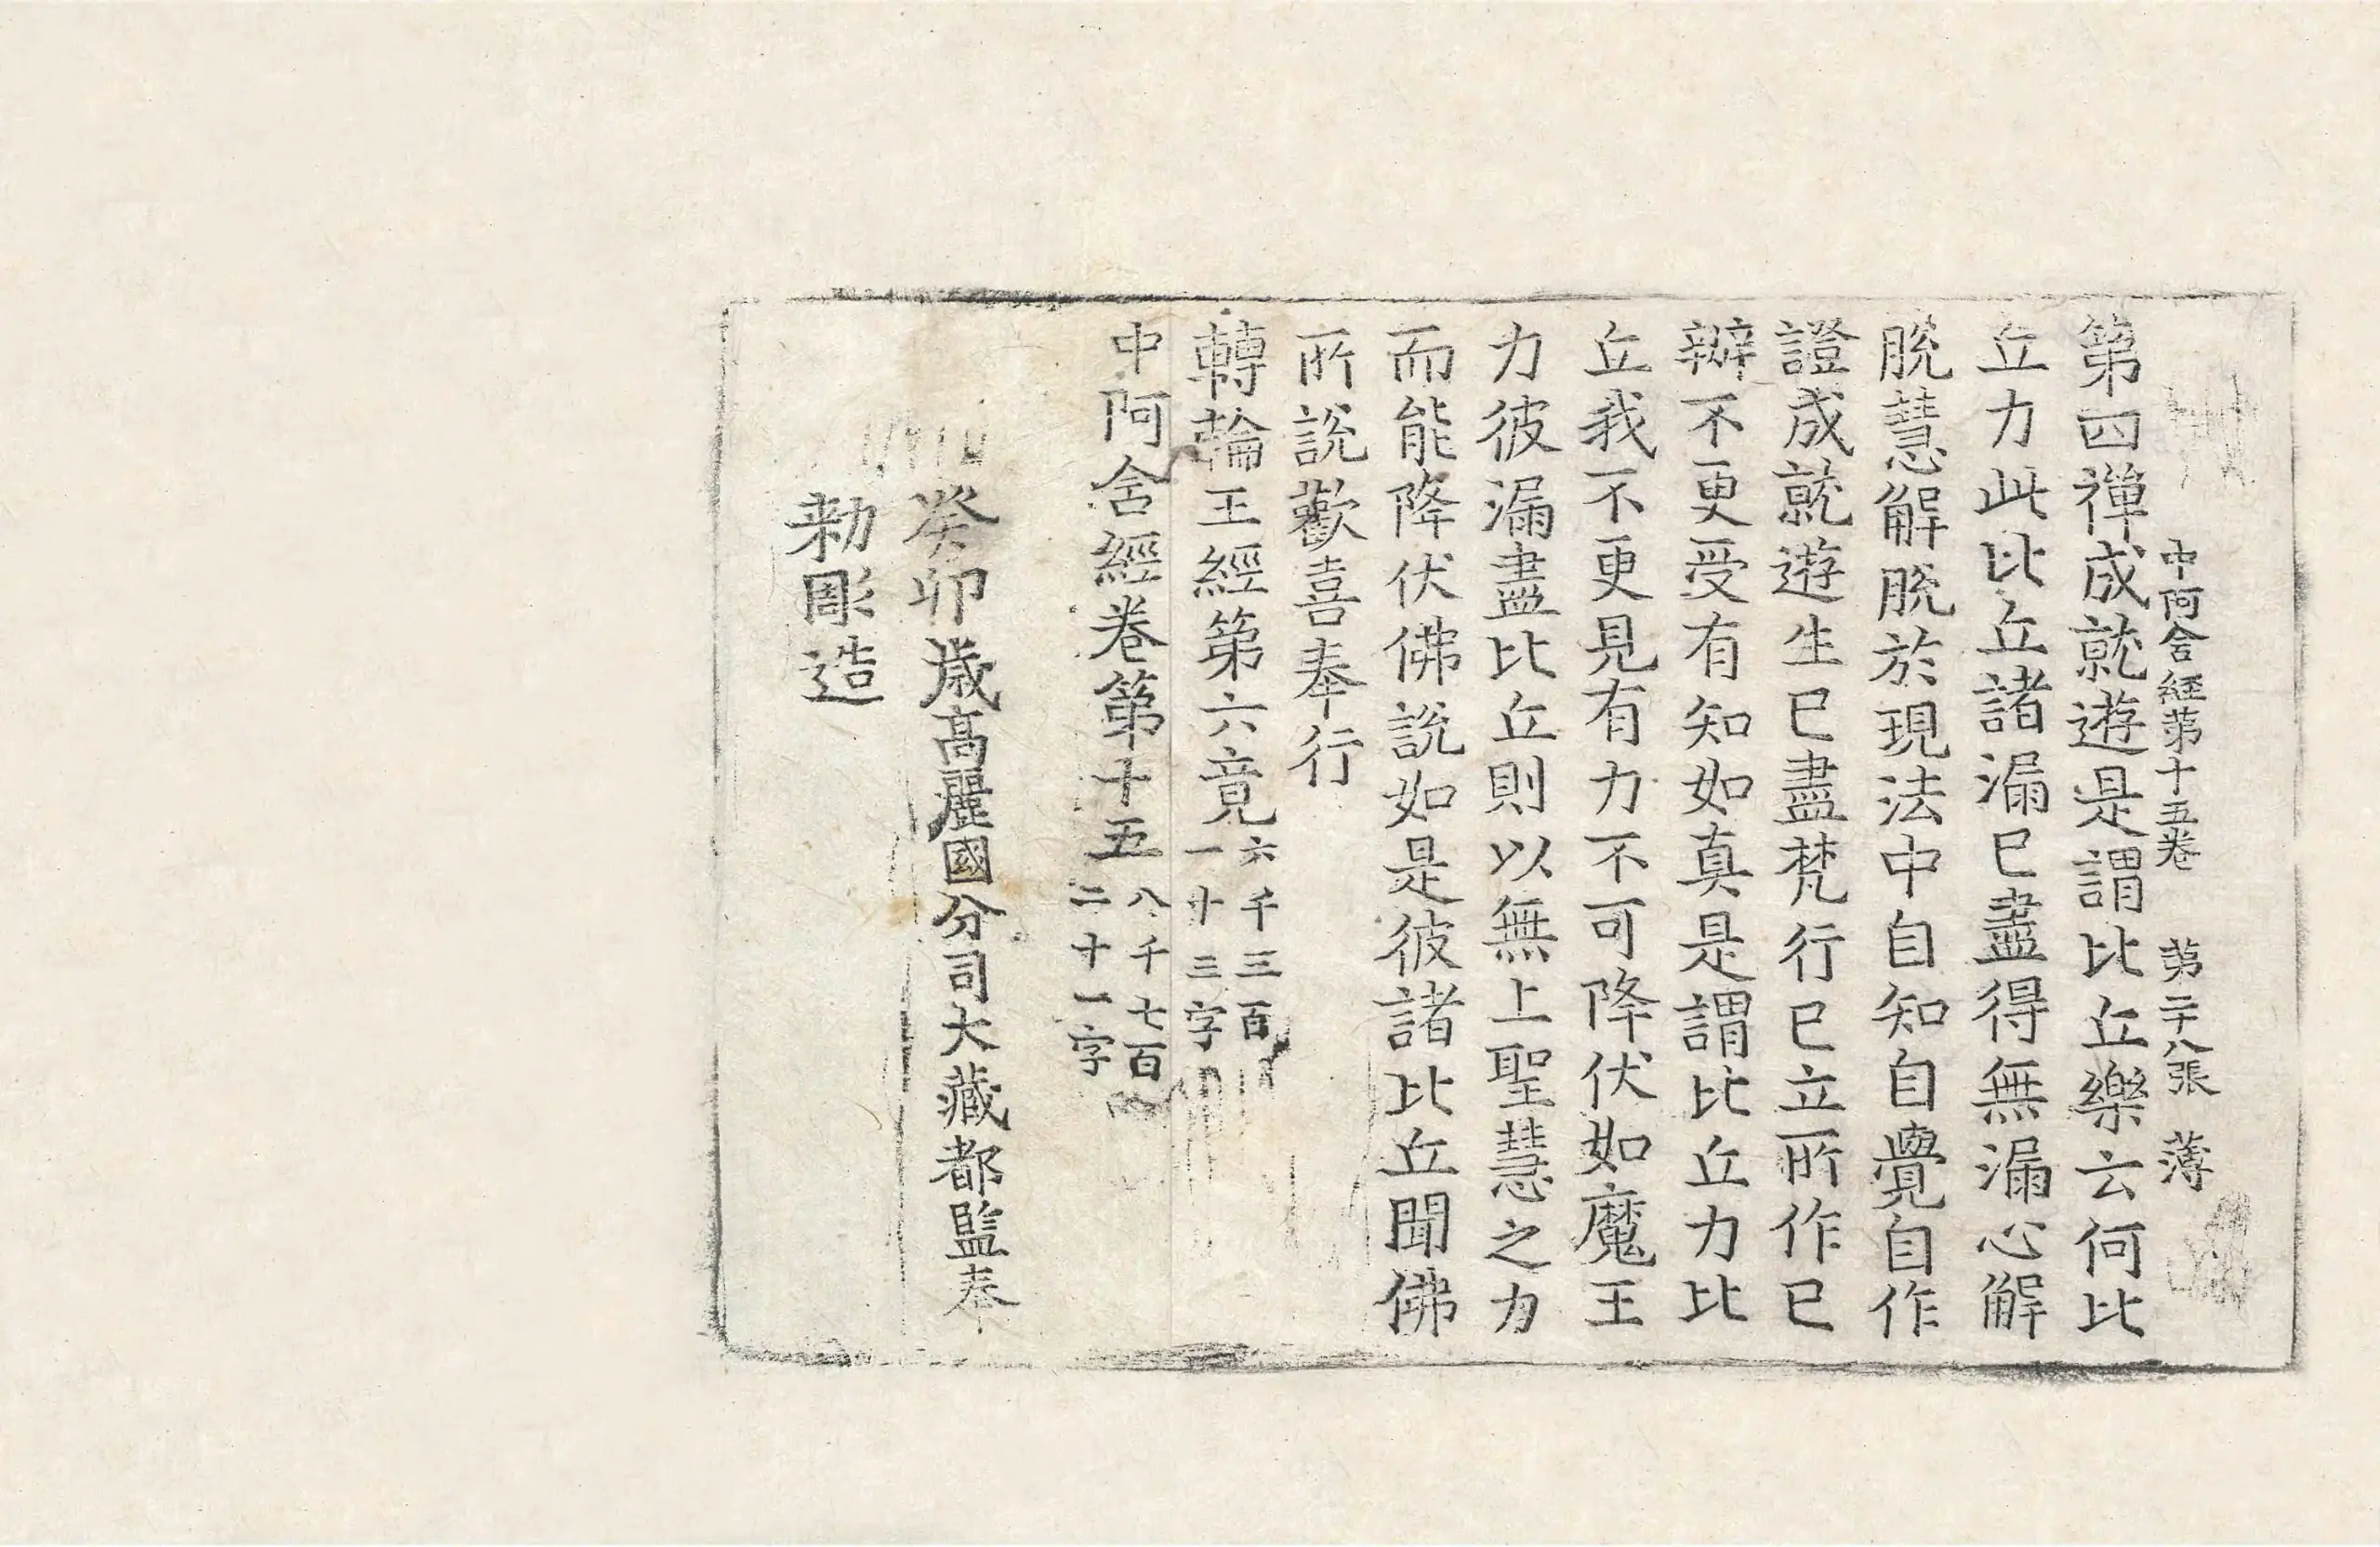 中阿含経第十五卷 第二十八張 薄
第四禪成就遊是謂比丘樂云何比
丘力此比丘諸漏已盡得無漏心解
脫慧解脫於現法中自知自覺自作
證成就遊生已盡梵行已立所作已
辦不更受有知如真是謂比丘力比
丘我不更見有力不可降伏如魔王
力彼漏盡比丘則以無上聖慧之力
而能降伏佛說如是彼諸比丘聞佛
所說歡喜奉行
轉輪王經第六竟六千三百
一十三字
中阿含經卷第十五八千七百
二十一字
癸卯歲高麗國分司大藏都監奉
勑彫造